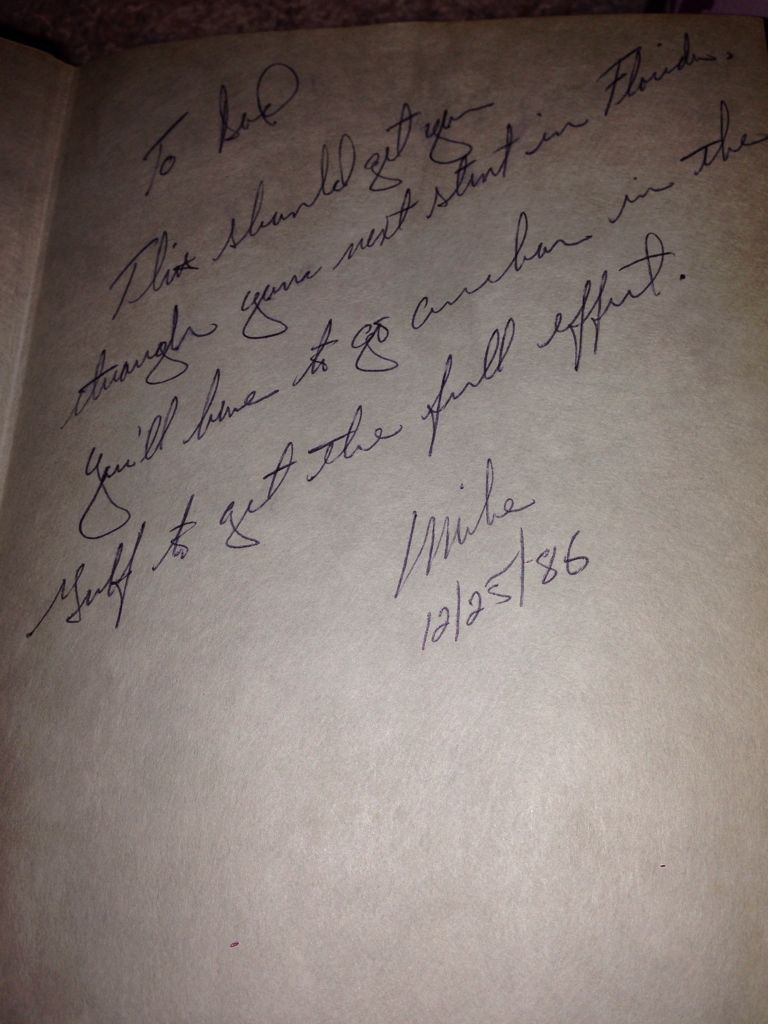 To Dad
This should get you
through your next stint in Florida.
You'll have to go anchor in the
Gulf to get the full effect.
Mike
12/25/86